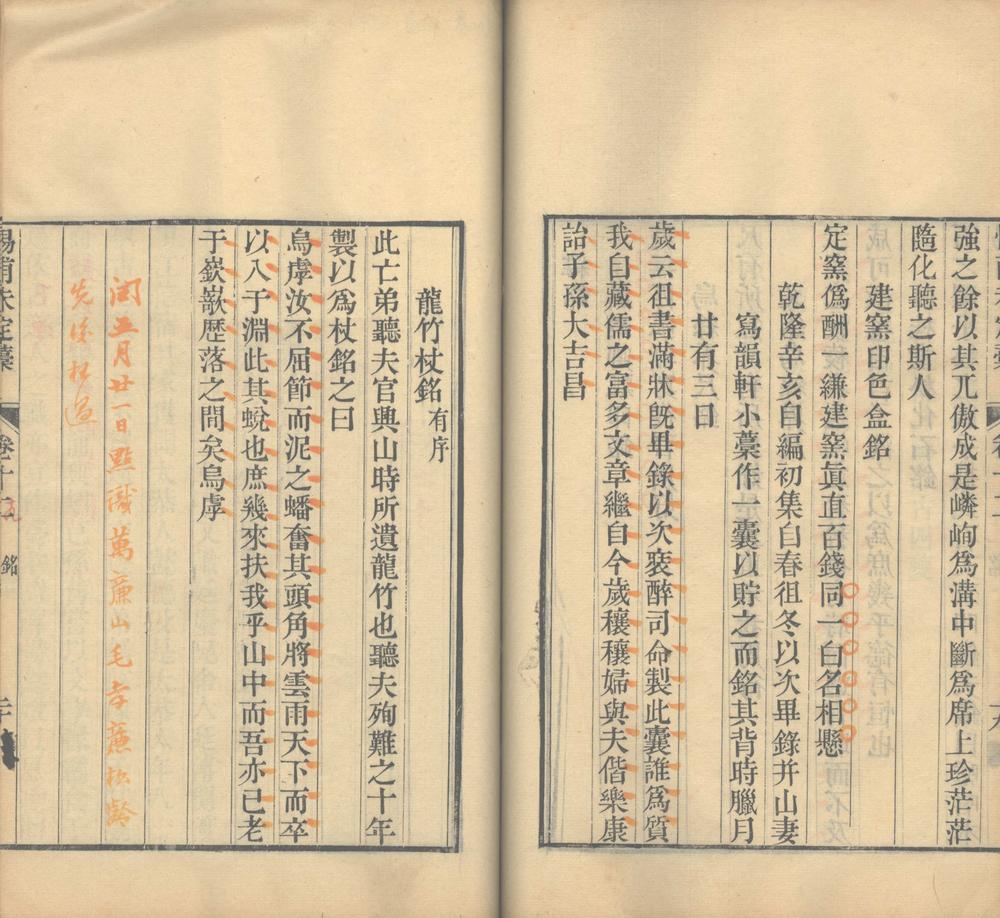 強之餘以其兀傲成是嶙峋爲溝中斷爲席上珍茫茫
隨化聽之斯人
建窯印色盒銘
定窯僞酬一縑建窯眞直百錢同一白名相懸
乾隆辛亥自編初集自春徂冬以次畢錄并山妻
寫韻軒小藁作一囊以貯之而銘其背時臘月
廿有三日
歲云徂書滿牀旣畢錄以次裦醉司命製此囊誰爲質
我自藏儒之富多文章繼自今歲穰穰婦與夫偕樂康
詒子孫大吉昌
龍竹杖銘 有序
此亡弟聽夫官興山時所遺龍竹也聽夫殉難之十年
製以爲杖銘之曰
烏虖汝不屈節而泥之蟠奮其頭角將雲雨天下而卒
以入于淵此其蛻也庶幾來扶我乎山中而吾亦已老
于嶔嶔歷落之間矣烏虖
閏五月廿一日點
萬廉山毛孝廉松齡
先後校過
惕甫未定藁 卷十二 銘 二十